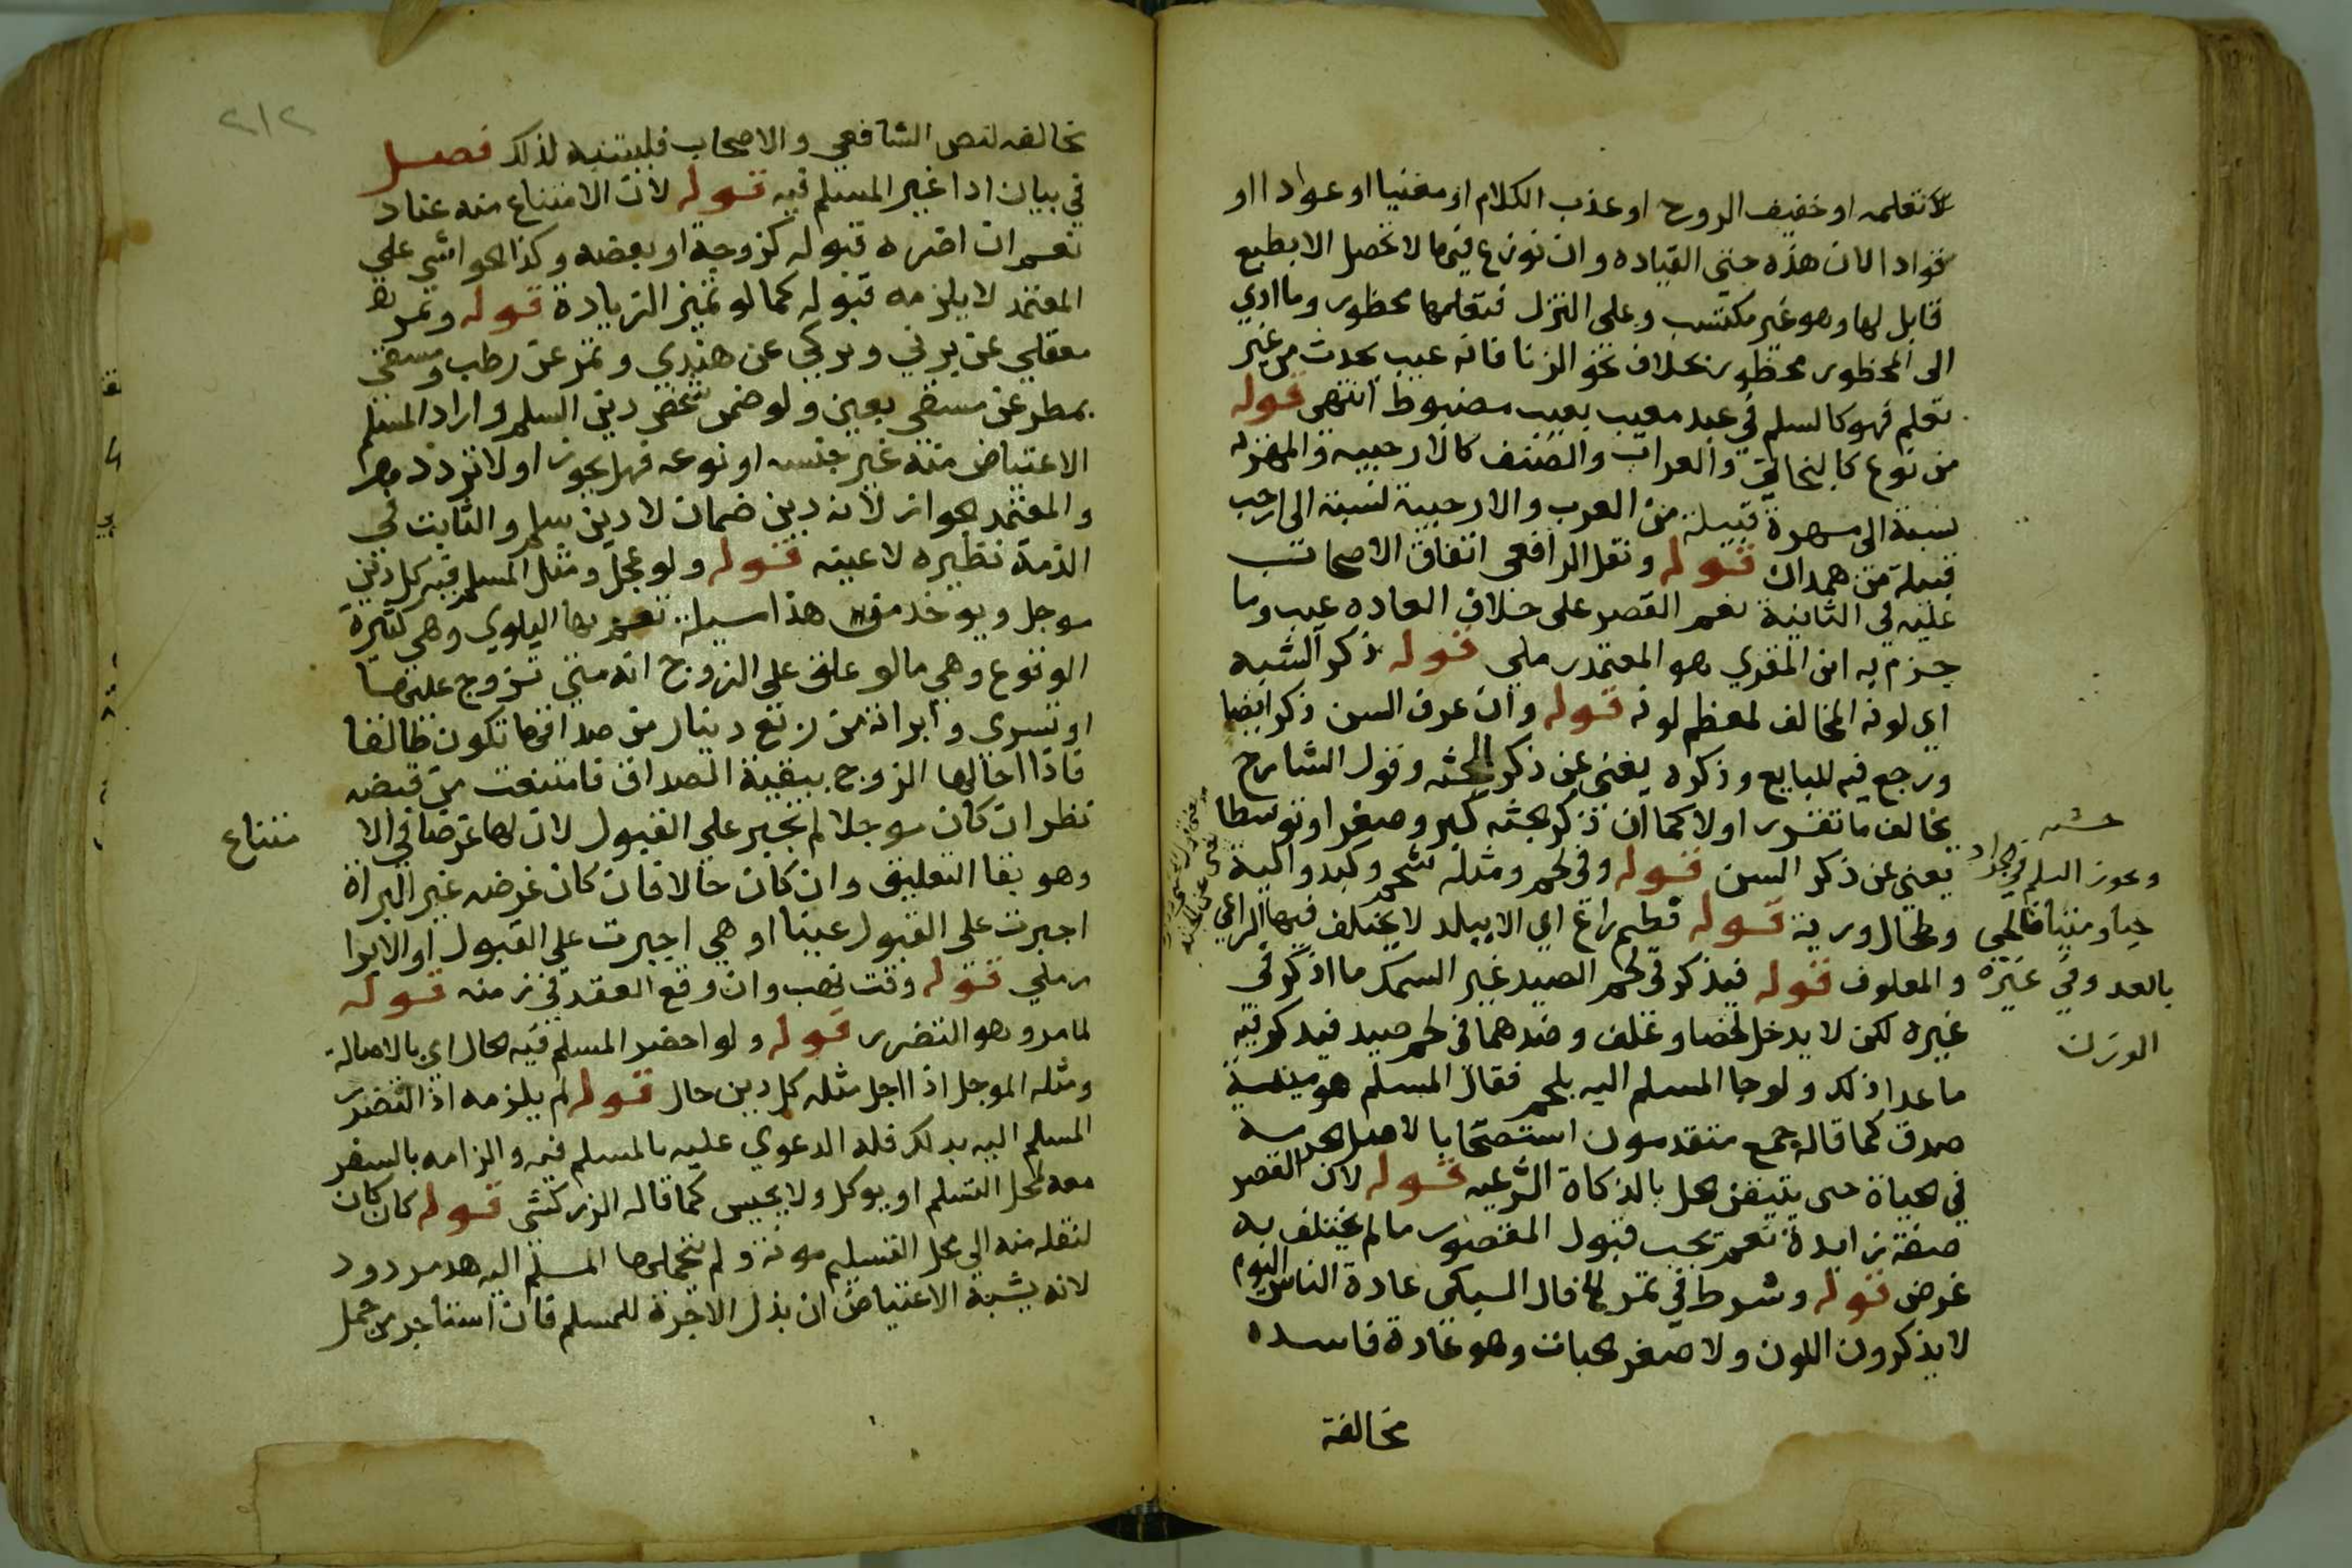 لا تعلمه او خفيف الروح او عذب الكلام او مغنيا او عوادا او
قوادا لان هذه جنى القياده وان نوزع فيها لا تحصل الا بطبع
قابل لها وهو غير مكتسب وعلى التنزل فتعلمها محظور وما ادي
الى المحظور محظور بخلاف نحو الزنا فانه عيب يحدث من غير
تعلم فهو كالسلم في عبد معيب بعيب مضبوط انتهى قوله
من نوع كالبخاتي والعراب والصنف كالارحبية والمهرية
نسبة الى مهرة قبيلة من العرب والارحبية نسبة الى ارحب
قبيلة من همدان قوله ونقل الرافعي اتفاق الاصحاب
عليه في الثانية نعم القصر على خلاف العاده عيب وما
جزم به ابن المقري هو المعتمد رملي قوله ذكر الشيه
اي لونه المخالف لمعظم لونه قوله وان عرف السن ذكر ايضا
ورجع فيه للبايع وذكره يغني عن ذكر الجثه وقول الشارح
يخالف ما تقرر اولا كما ان ذكر جثه كبر وصغر او توسطا
يعني عن ذكر السن قوله وفي لحم ومثله شحم وكبد والية
وطحال ورية قوله فطيم راع اي الا ببلد لا يختلف فيها الراعي
والمعلوف قوله فيذكر في لحم الصيد غير السمك ما اذكر في
غيره لكن لا يدخل لخصا وعلف وضدهما في لحم صيد فيذكر فيه
ما عدا ذلك ولو جا المسلم اليه بلحم فقال المسلم هو ميتة
صدق كما قاله جمع متقدمون استصحابا لاصل الحرمه
في الحياة حتى يتيقن الحل بالذكاة الشرعيه قوله لان القصر
صفة زايدة نعم يجب قبول المقصور ما لم يختلف به
غرض قوله وشرط في تمر الخ قال السبكي عادة الناس اليوم
لا يذكرون اللون ولا صغر الحبات وهو عادة فاسده
مخالفة
جثه
ويجوز السلم في الجراد
حيا وميتا فالحي
بالعد وفي غيره
الوزن
٢١٢
مخالفه لنص الشافعي والاصحاب فليتنبه لذلك فصل
في بيان اداء غير المسلم فيه قوله لان الامتناع منه عناد
نعم ان اضره قبوله كزوجة او بعضه وكذا الحواشي على
المعتمد لا يلزمه قبوله كما لو تميز الزيادة قوله وتمر
معقلي عن برني وتركي عن هندي وتمر عن رطب ومسقي
بمطر عن مسقي بعين ولو ضمن شخص دين السلم واراد المسلم
الاعتياض منه غير جنسه او نوعه فهل يجوز اولا تردد
والمعتمد الجواز لانه دين ضمان لا دين سلم والثابت في
الذمة نظيره لا عينه قوله ولو عجل ومثل المسلم فيه كل دين
موجل ويوخذ من هذا مسيلة تعم بها البلوي وهي كثيرة
الوقوع وهي ما لو علق على الزوج انه متي تزوج عليها
او تسري وابرانه من ربع دينار من صداقها تكون طالقا
فاذا احالها الزوج ببقية الصداق فامتنعت من قبضه
نظر ان كان موجلا لم تجبر على القبول لان لها غرضا في الا
متناع
وهو بقا التعليق وان كان حالا فان كان غرضه غير البراة
اجبرت على القبول عينا او هي اجبرت على القبول او الابرا
رملي قوله وقت نهب وان وقع العقد في زمنه قوله
لما مر وهو التضرر قوله ولو احضر المسلم فيه الحال اي بالاصالة
ومثله الموجل اذا اجل مثله كل دين حال قوله لم يلزمه اذا التضرر
المسلم اليه بذلك فله الدعوي عليه بالمسلم فيه والزامه بالسفر
معه لمحل التسلم او يوكل ولا يحبس كما قاله الزركشي قوله كان كان
لنقله منه الي محل التسليم مونة ولم يتحملها المسلم اليه هو مردود
لانه يشبه الاعتياض ان بذل الاجرة للمسلم فان استاجر من حمل